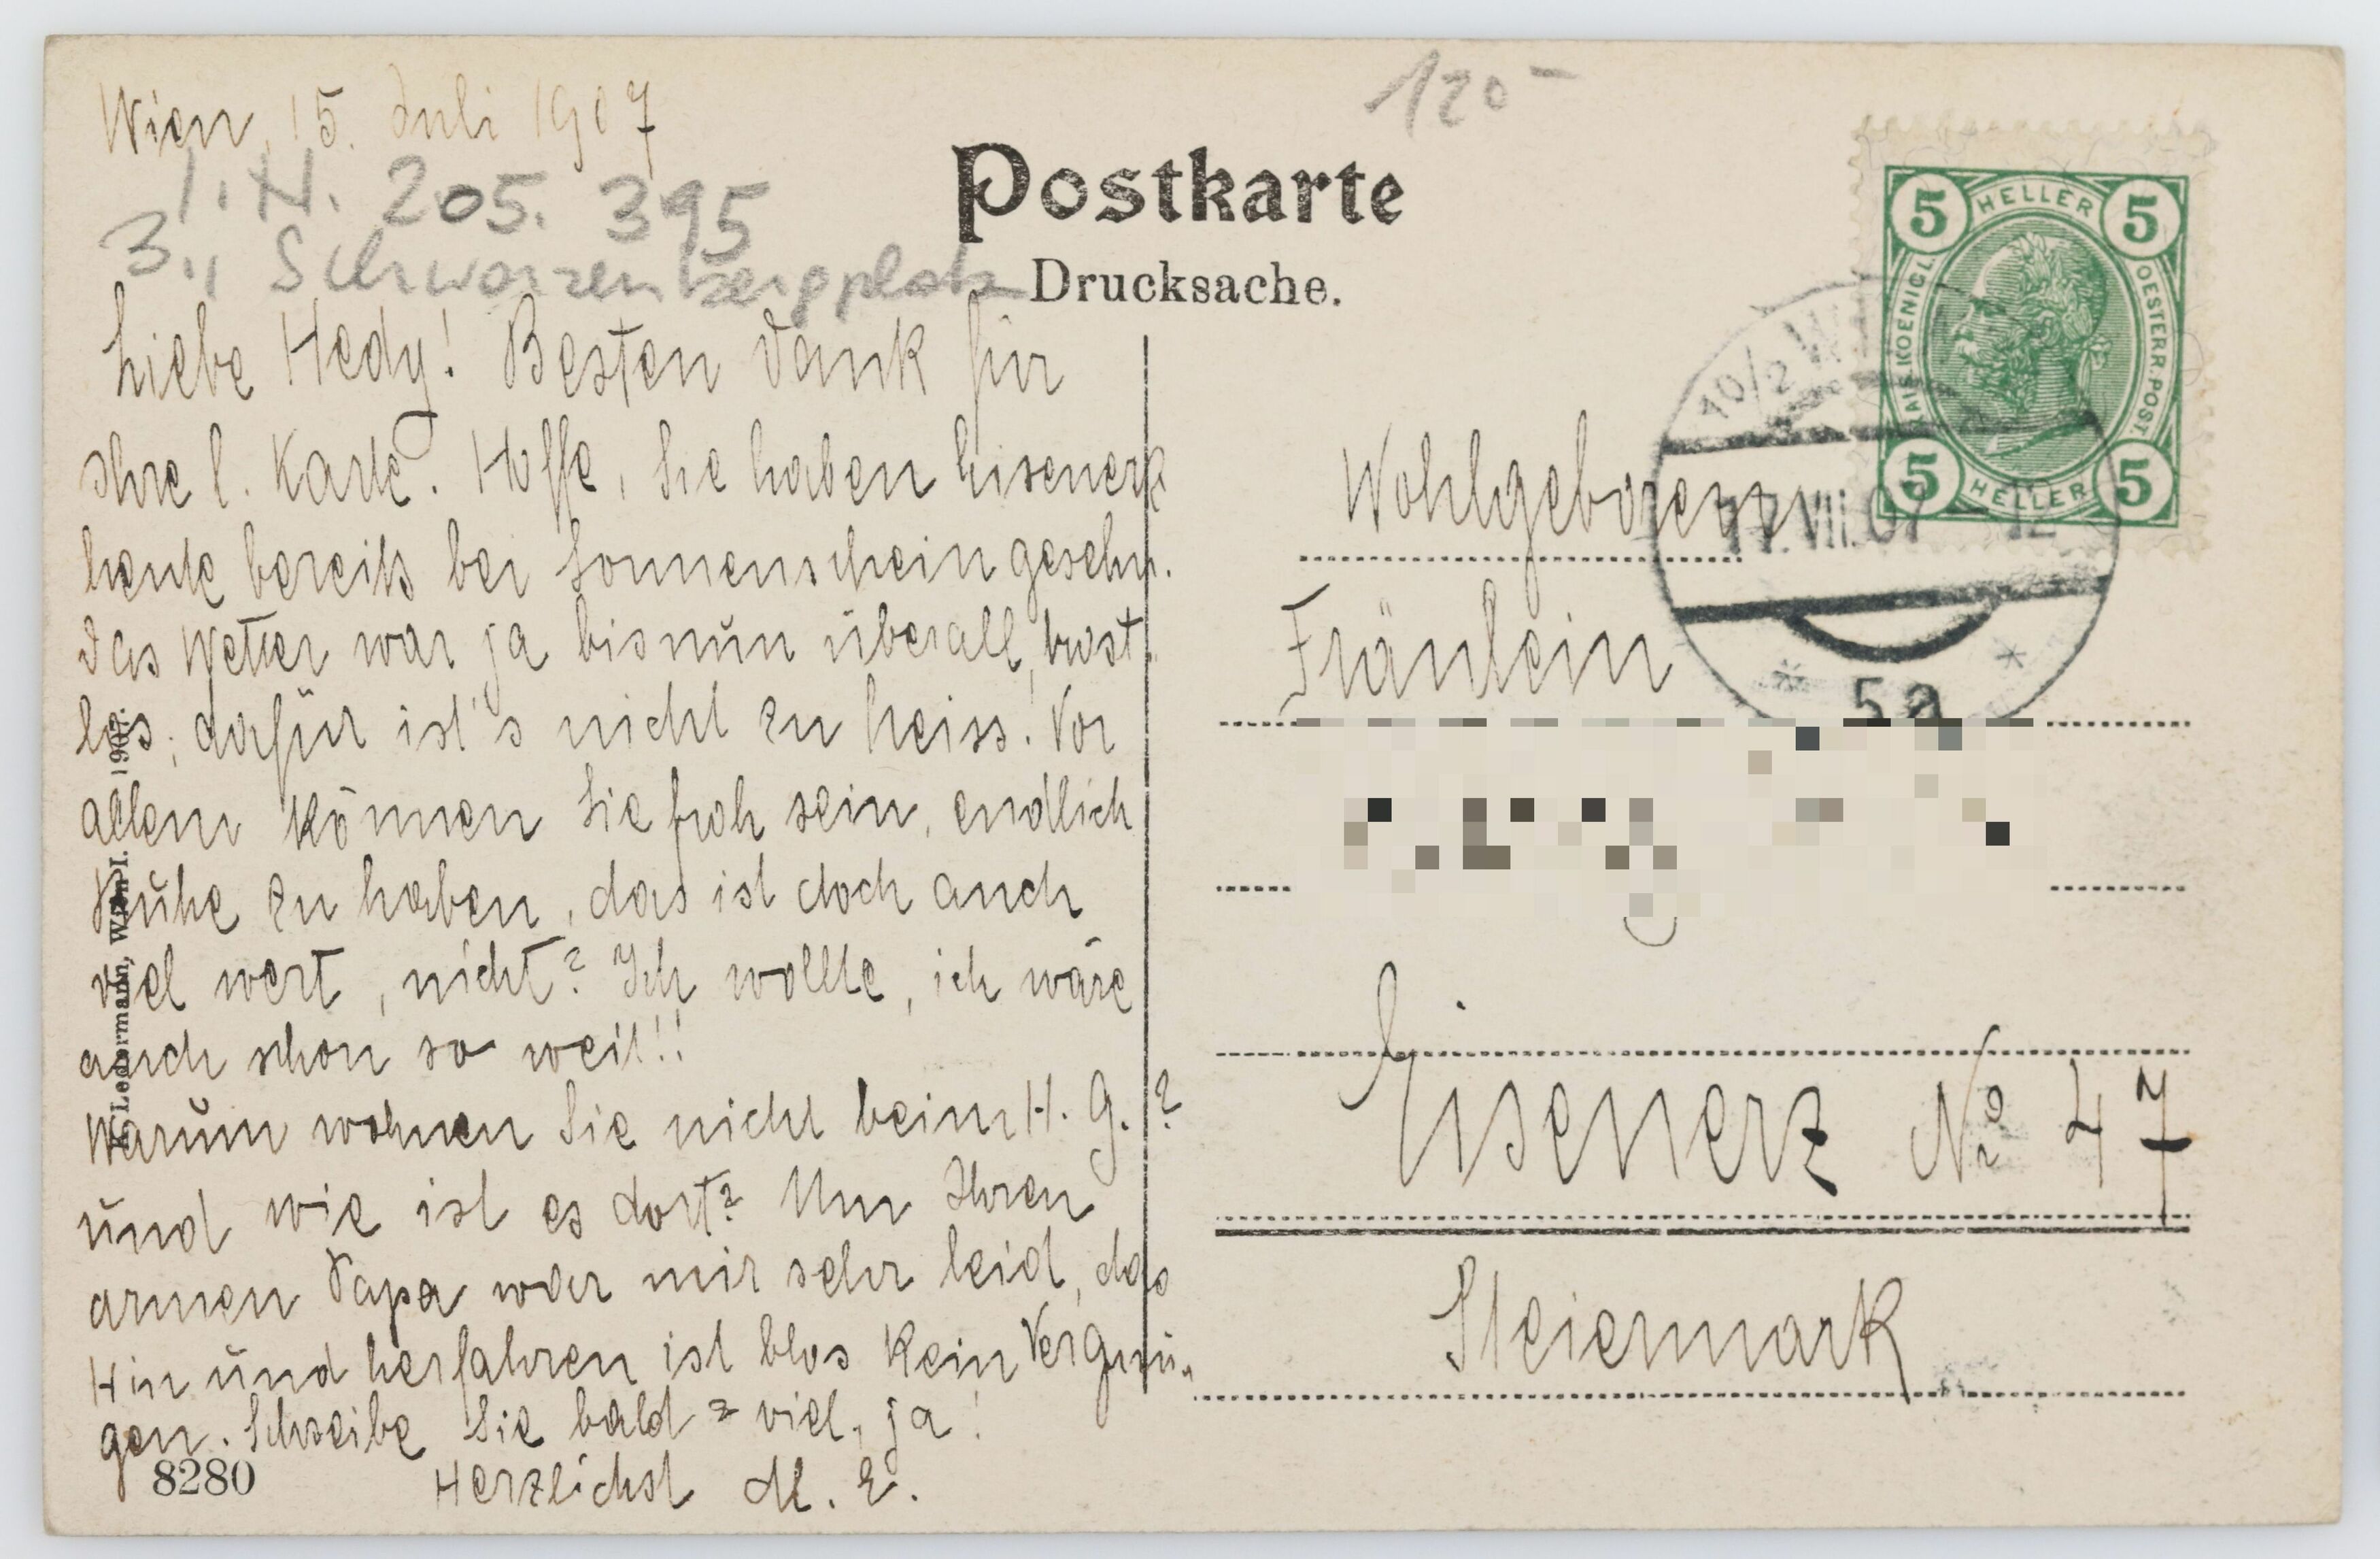 Wien, 15. Juli 1907
I.N. 205.395
3., Schwarzenbergplatz
120-
Postkarte
Drucksache.
Liebe Hedy! Besten Dank für
Ihre l. Karte. Hoffe, Sie haben Eisenerz
heute bereits bei Sonnenschein gesehn.
Das Wetter war ja bis nun überall trost-
los, dafür ist's nicht zu heiss! Vor
allem können Sie froh sein, endlich
Ruhe zu haben, das ist doch auch
viel wert, nicht? Ich wollte, ich wäre
auch schon so weit!!
Warum wohnen Sie nicht beim H. G.?
und wie ist es dort? Um Ihren
armen Papa war mir sehr leid, das
Hin und herfahren ist blos kein Vergnü-
gen. Schreibe Sie bald & viel, ja!
Herzlichst M. E.
8280
K. Ledermann, Wien I. 190
5 HELLER 5
KAIS. KOENIGL. OESTERR. POST.
5 HELLER 5
10/2 WI
17.VII.07 - 12
* 5a *
Wohlgeboren
Fräulein
Eisenerz No 47
Steiermark